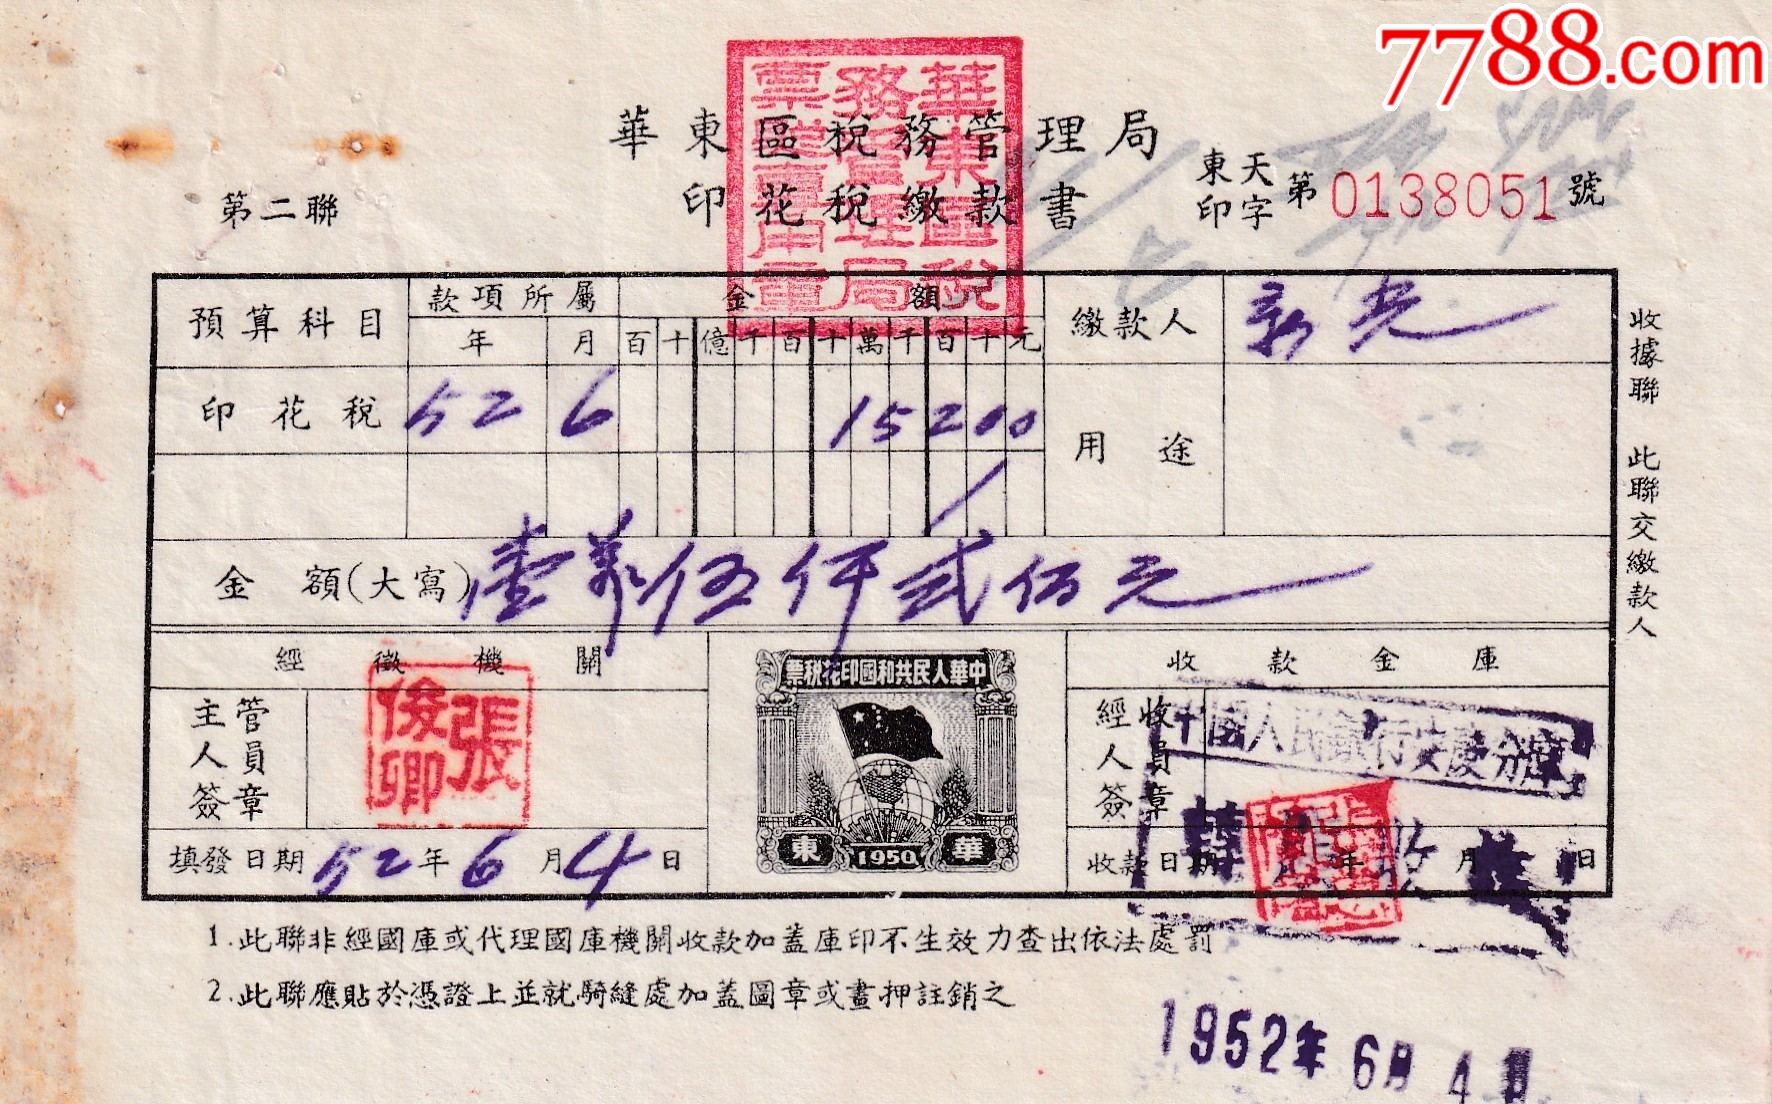 7788.com
華東區稅務管理局
印花稅繳款書
第二聯
東印天字第0138051號
華東區稅務管理局票證專用章
預算科目 款項所屬 金額 繳款人 新光
年 月 百十億千百十萬千百十元
印花稅 52 6 15200 用途
金額(大寫) 壹萬伍仟弍佰元
經徵機關 收款金庫
主管人員簽章 張俊卿
中華人民共和國印花稅票
華東
1950
經收人員簽章
中國人民銀行安慶分庫
轉 收訖
填發日期 52年6月4日
收款日期 年 月 日
收據聯 此聯交繳款人
1.此聯非經國庫或代理國庫機關收款加蓋庫印不生效力查出依法處罰
2.此聯應貼於憑證上並就騎縫處加蓋圖章或畫押註銷之
1952年6月4日